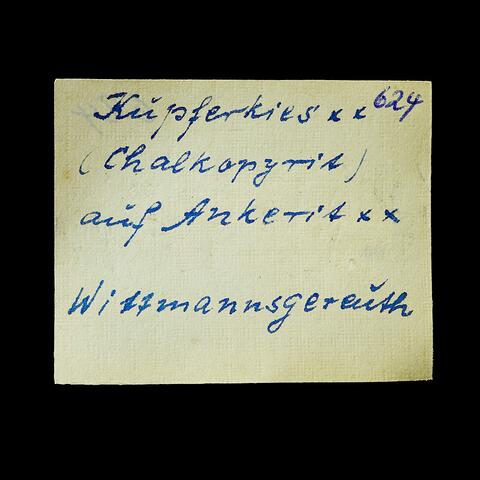 Kupferkies xx 624
(Chalkopyrit)
auf Ankerit xx
Wittmannsgereuth